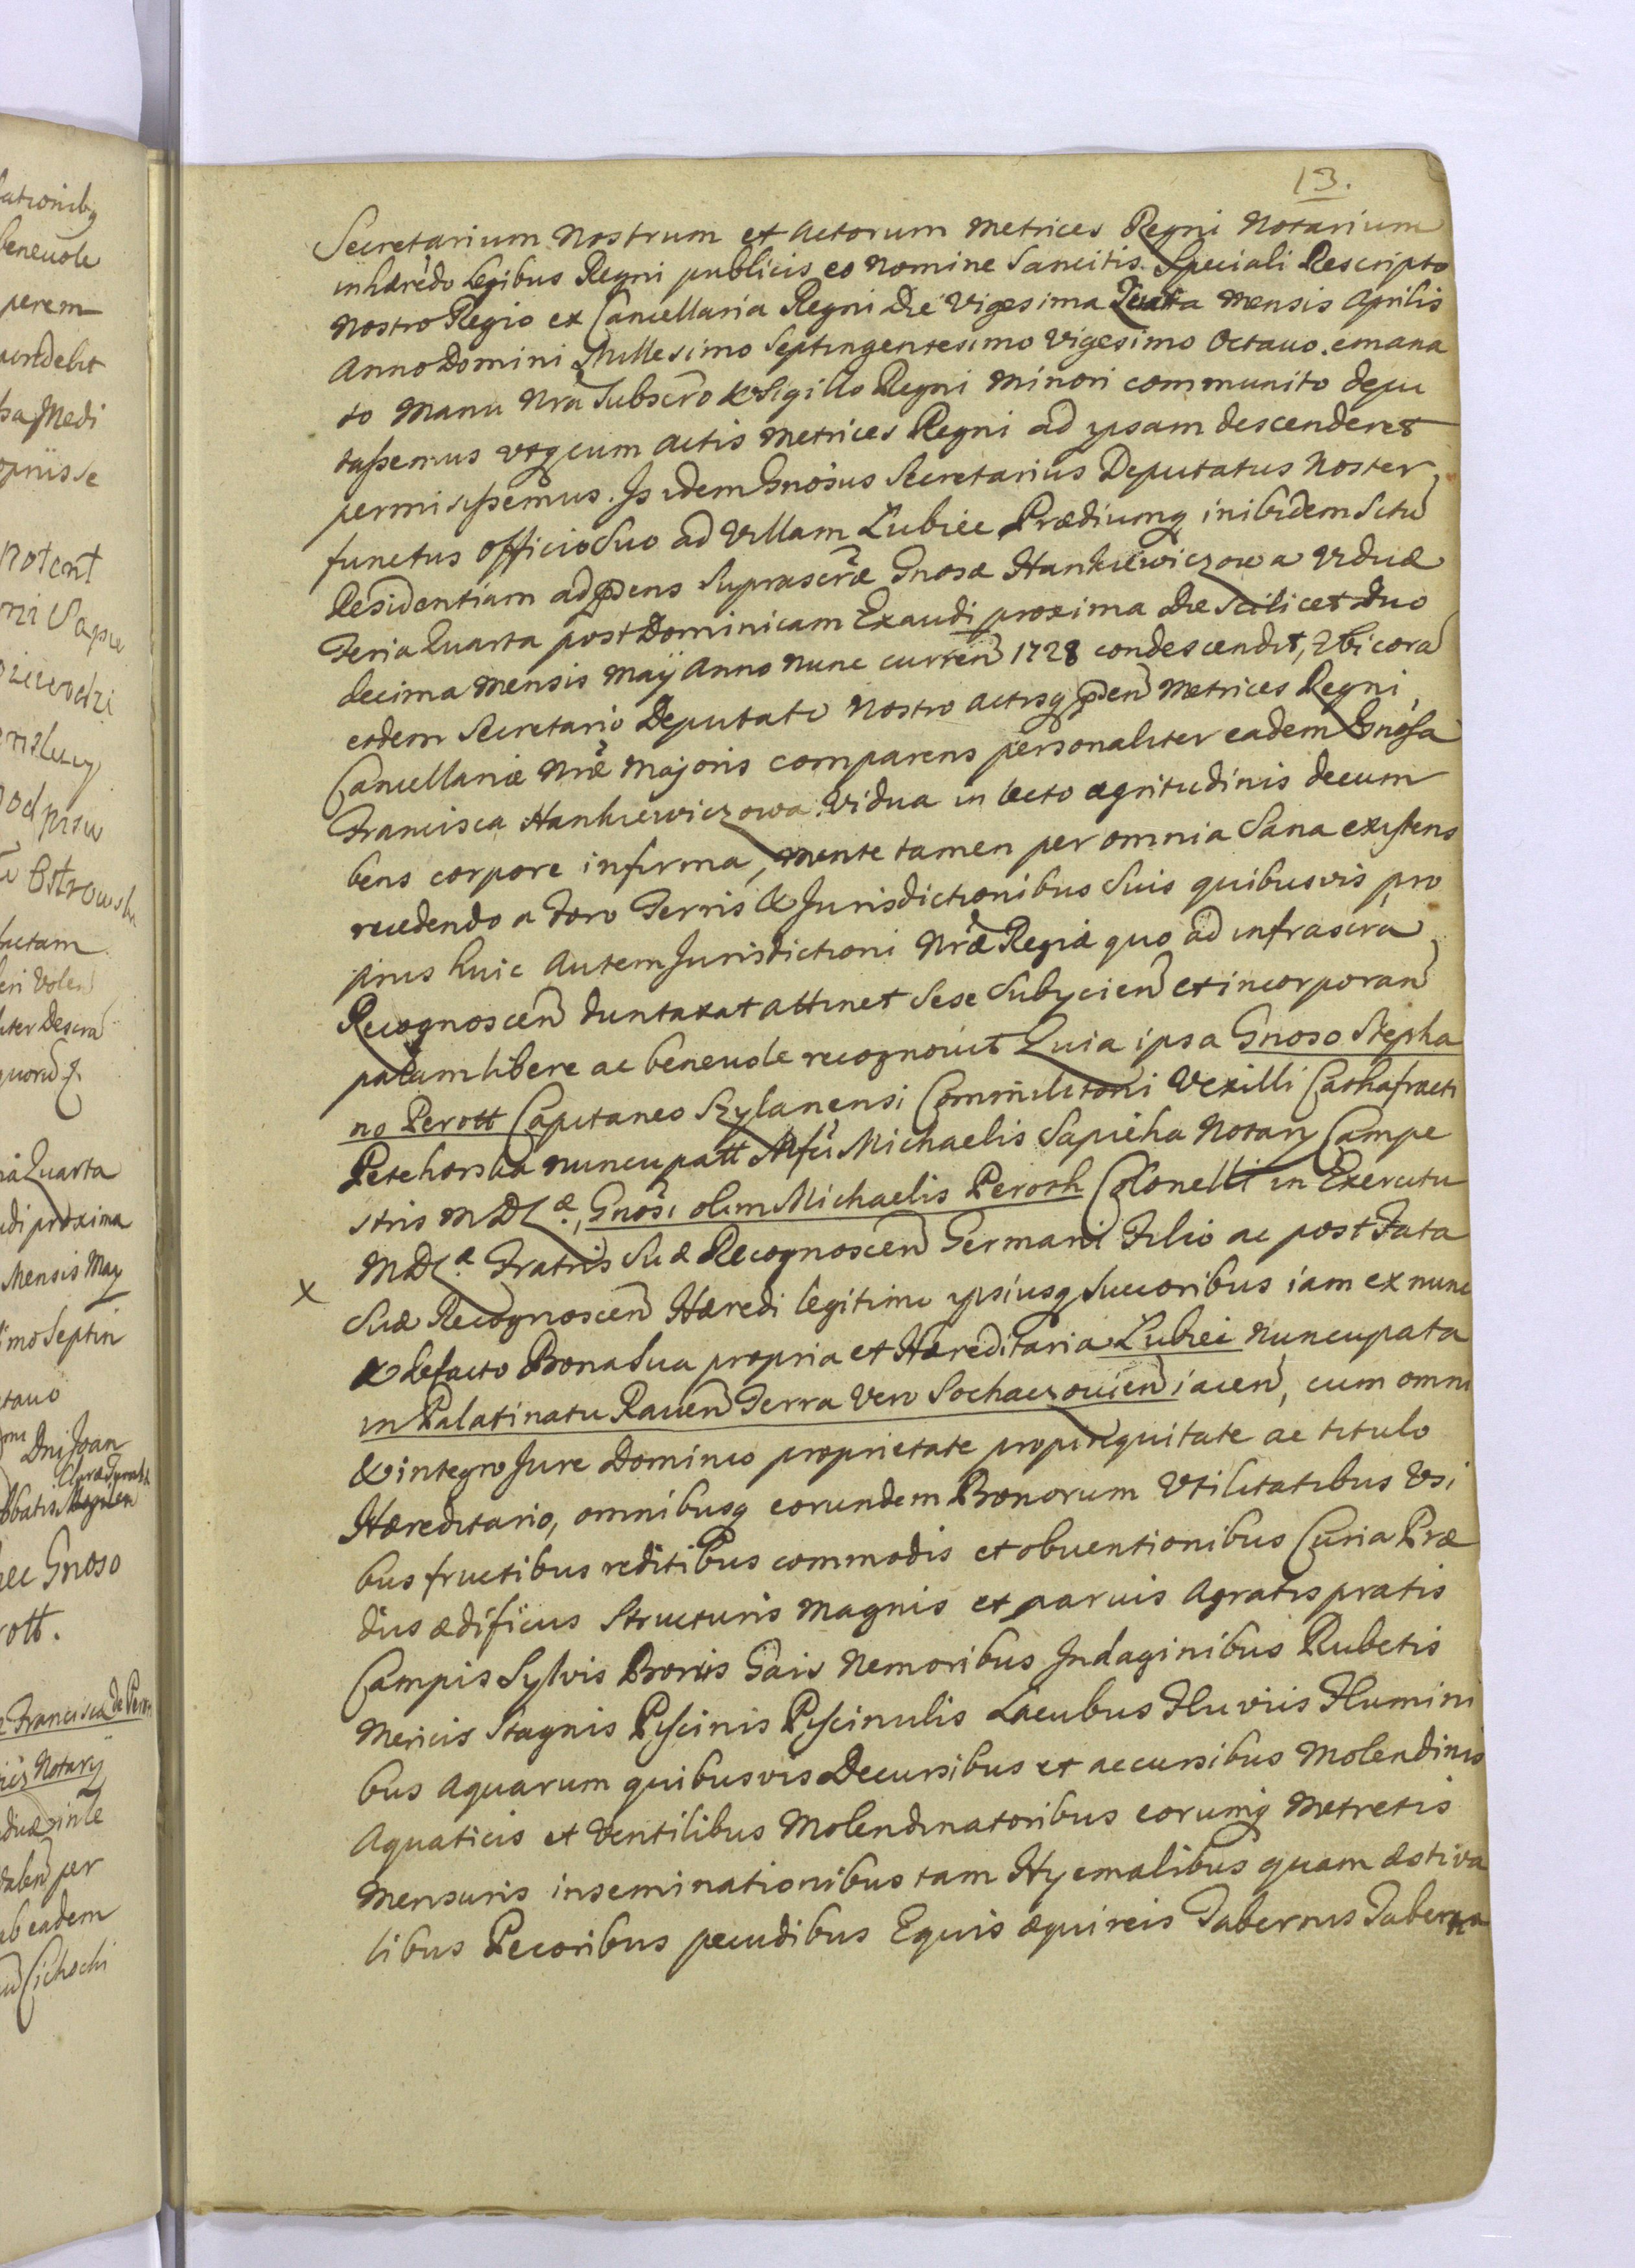 13.
Secretarium Nostrum et Actorum Metrices Regni Notarium
inhærẽdo legibus Regni publicis eo Nomine Sancitis. Speciali Rescripto
Nostro Regio ex Cancellaria Regni Die Vigesima Mensis Aprilis
Anno Domini Millesimo Septingentesimo Vigesimo Octauo. emana
to Manu Nrã Subscrõ & Sigillo Regni Minori communito depu
tassemus vtq cum Actis Metrices Regni ad ipsam descenderet
permisissemus. Is idem Gnosus Secretarius Deputatus Noster
functus officio Suo ad Villam Lubiec Prædiumq inibidem Situ
Residentiam adpsens Suprascræ Gnosæ Hankiewiczowa Viduæ
Feria Quarta post Dominicam Exaudi proxima die Scilicet duo
decima Mensis Maÿ Anno Nunc curren 1728 condescendit, Ibi cora
eodem Secretario Deputato Nostro Actisq pden Metrices Regni
Cancellariæ Nræ Majoris comparens personaliter eadem Gnosa
Francisca Hankiewiczowa Vidua in lecto ægritudinis decum
bens corpore infirma, Mente tamen per omnia Sana existens
recedendo a Foro Terris & Jurisdictionibus Suis quibusvis pro
prius huic Autem Jurisdictioni Nræ Regiæ quo ad infrascra
Recognoscen duntaxat attinet Sese Subÿcien et incorporan
palam libere ac beneuole recognouit Quia ipsa Gnoso Stepha
no Perott Capitaneo Szylanensi Commilitoni Vexilli Cathafracti
Petehorska nuncupatt Mfci Michaelis Sapieha Notarÿ Campe
stris MDLæ, Gnosi olim Michaelis Peroth Colonelli in Exercitu
MDLæ Fratris Suæ Recognoscen Germani Filio ac post Fata
x Suæ Recognoscen Hæredi legitimo ipsiusq Succoribus iam ex nunc
& defacto Bona Sua propria et Hæreditaria Lubiei Nuncupata
in Palatinatu Rauen Terra Vero Sochaczouien iacen, cum omni
& integro Jure Dominio proprietate propinquitate ac titulo
Hæreditario, omnibusq eorundem Bonorum Vtilitatibus Vsi
bus fructibus reditibus commodis et obuentionibus Curia Præ
diis ædificiis Structuris Magnis et paruis Agratis pratis
Campis Sylvis Borris Gais Nemoribus Indaginibus Rubetis
Mericis Stagnis Piscinis Piscinulis Lacubus Fluviis Flumini
bus Aquarum quibusvis Decursibus et accursibus Molendinis
Aquaticis et Ventilibus Molendinatoribus eorumq Metretis
Mensuris inseminationibus tam Hyemalibus quam æstiva
libus Pecoribus pecudibus Equis æquireis Tabernis Taberna